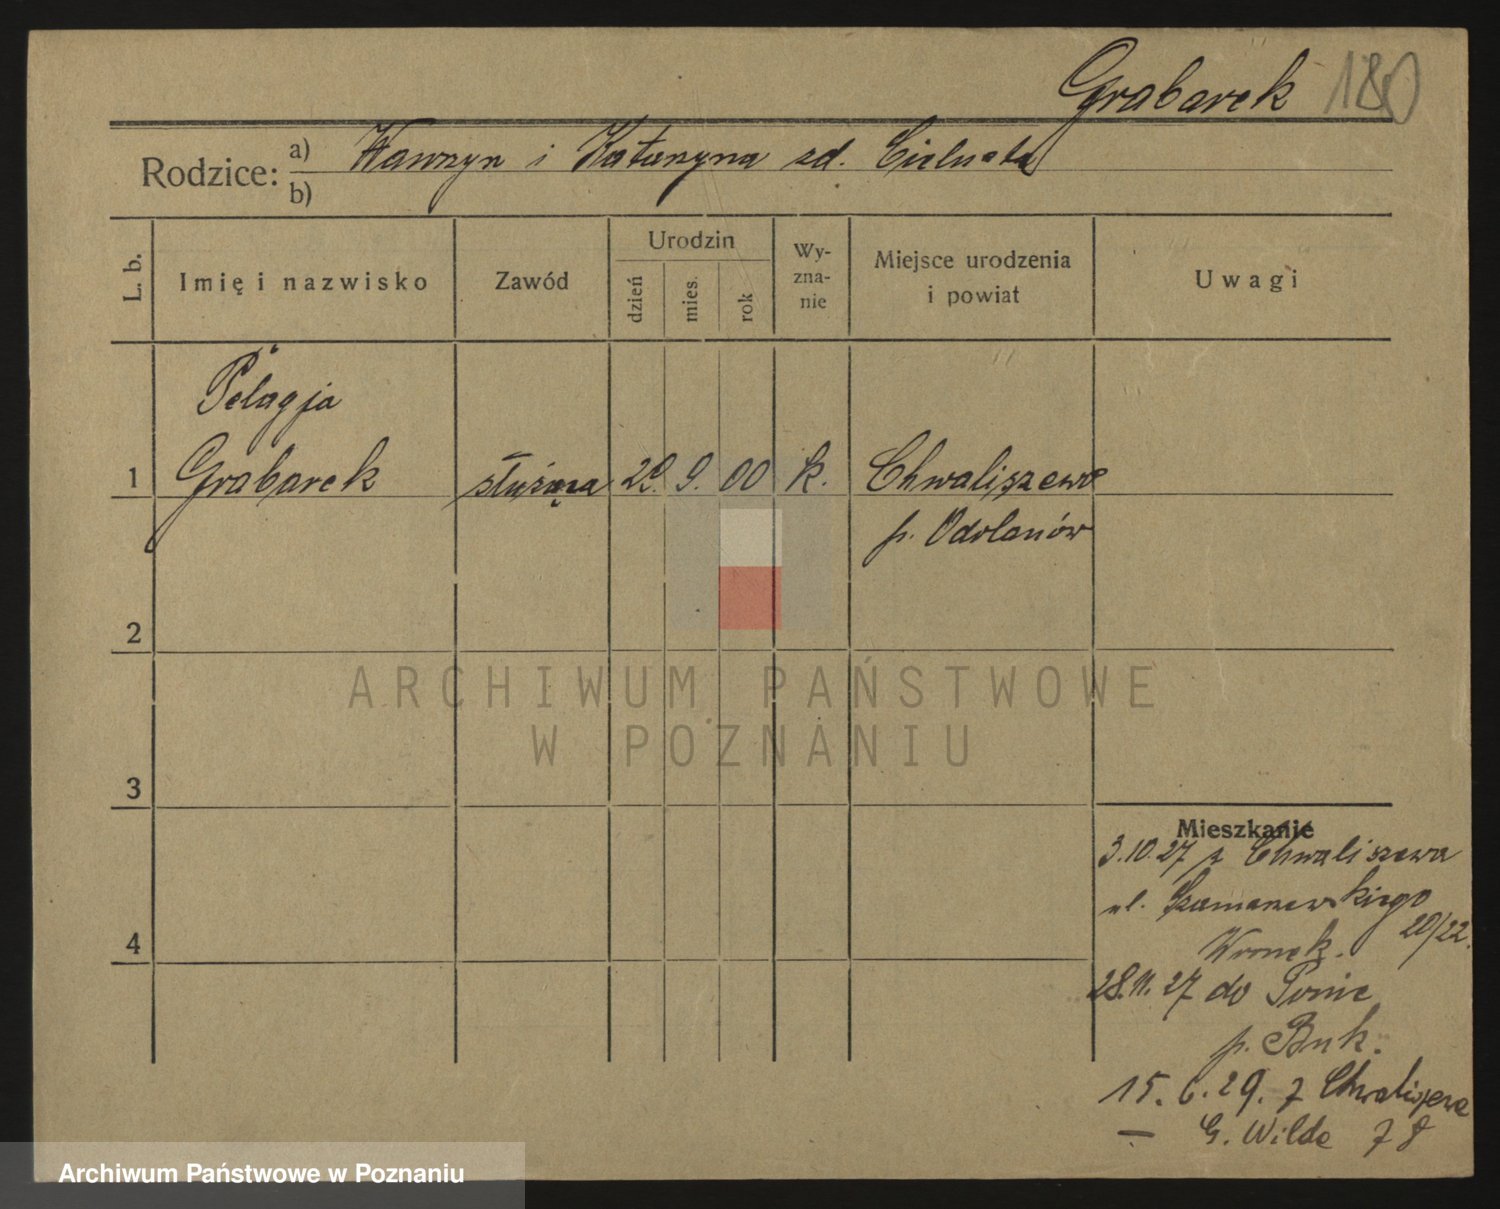 Grabarek 180
Rodzice: a) Wawrzyn i Katarzyna zd.
b)
L. b.
Imię i nazwisko
Zawód
Urodzin
dzień
mies.
rok
Wy-
zna-
nie
Miejsce urodzenia
i powiat
Uwagi
Pelagja
1 Grabarek służąca 29. 9. 00 k. Chwaliszewo
p. Odolanów
2
3
4
Mieszkanie
3.10.27 z Chwaliszewa
ul. Szamarzewskiego
20/22.
Wronek.
28.11.27 do
p. Buk.
15. 6. 29. z Chwaliszewa
— G. Wilda 78
ARCHIWUM PAŃSTWOWE
W POZNANIU
Archiwum Państwowe w Poznaniu